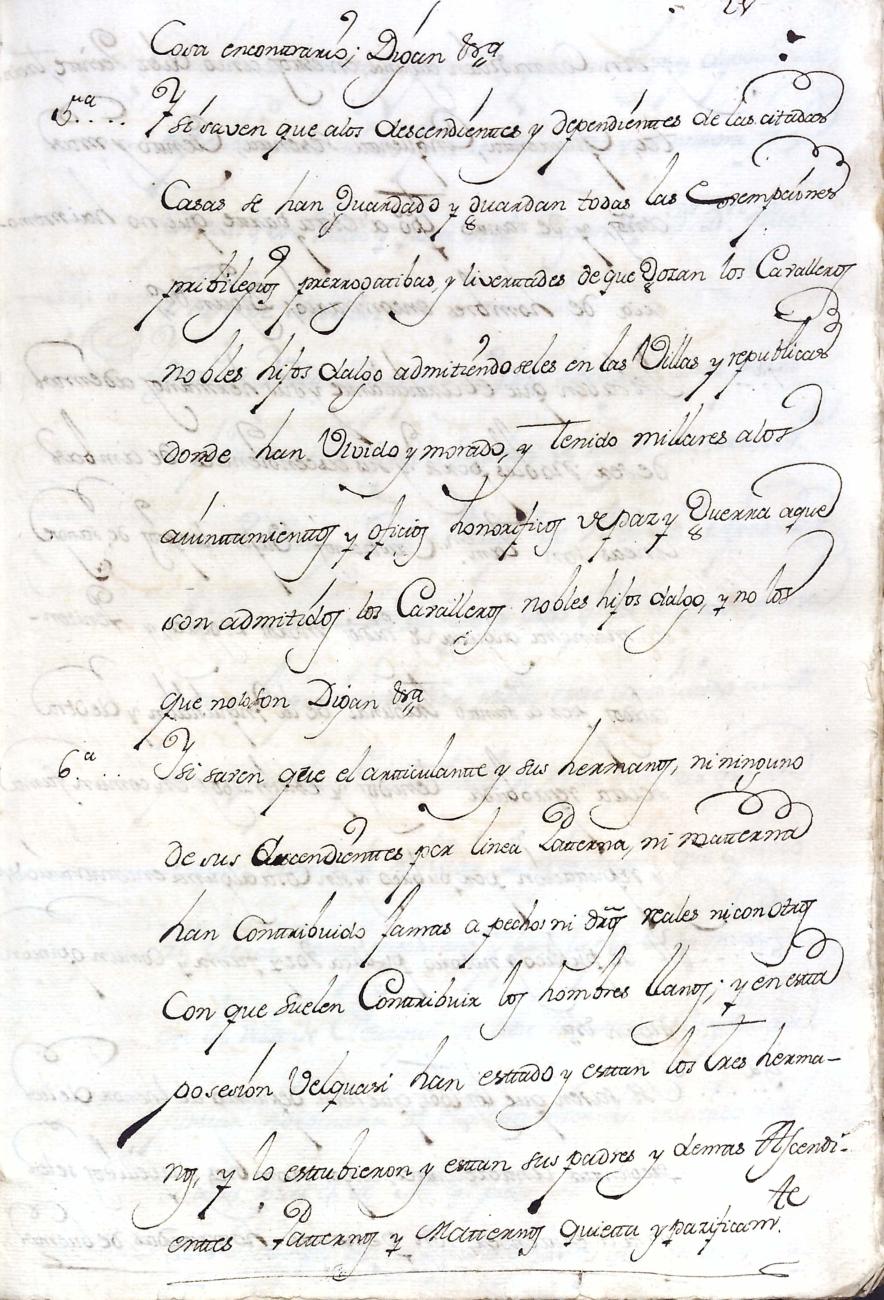 Cosa encontrario; Digan &ra
5.ta .. Y si saven que alos descendientes y dependientes de las citadas
Casas se han Guardado y guardan todas las Esempciones
pribilegios prerrogatibas, y livertades de que Gozan los Cavalleros
nobles hijos dalgo admitiendoseles en las Villas y republicas
donde han Vivido y morado, y Tenido millares alos
aiuntamientos y oficios honorificos de paz y Guerra aque
son admitidos los Cavalleros nobles hijos dalgo, y no los
que nolo son Digan &ra
6.a ... Y si saven que el articulante y sus hermanos, ni ninguno
de sus Ascendientes por linea Patterna, ni matterna
han Conttribuido Jamas a pechos ni dros reales ni con otros
Con que suelen Conttribuir los hombres llanos; y en estta
posesion Velquasi han esttado y esttan los Tres herma-
nos, y lo esttubieron y esttan sus padres y demas Ascendi-
enttes Patternos y Matternos quietta y pazificamte.